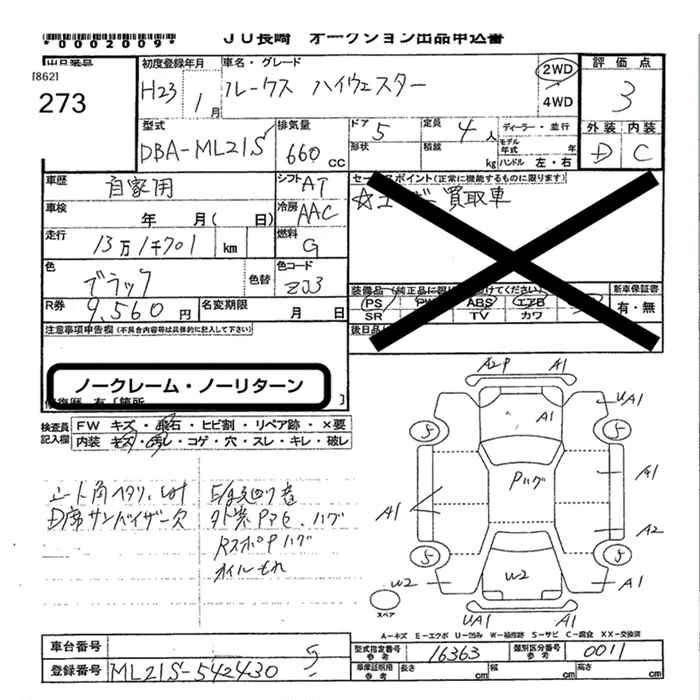 *0002009*
JU長崎 オークション出品申込書
[862]
273
初度登録年月
H23 1月
車名・グレード
ルークス ハイウェスター
2WD
4WD
評価点
3
外装 内装
D C
型式
DBA-ML21S
排気量
660 cc
ドア 5
形状
定員 4人
積載 kg
ディーラー・並行
モデル年式 年
ハンドル 左・右
車歴
自家用
シフト AT
車検
年 月( 日)
冷房 AAC
走行
13万1千701 km
燃料 G
色
ブラック
色替
色コード
ZJ3
R券
9,560円
名変期限
月 日
セールスポイント(正常に機能するものに限ります)
買取車
装備品
PS PW ABS エアB
SR TV カワ
新車保証書
有・無
後日品
注意事項申告欄(不具合内容等は具体的に記入して下さい)
ノークレーム・ノーリターン
検査員記入欄
FW キズ・飛石・ヒビ割・リペア跡・×要
内装 キズ・汚レ・コゲ・穴・スレ・キレ・破レ
D席サンバイザー欠
A2P A1
A1 UA1
5 5
Pハゲ
A1 A1
A2
5 5
W2 W2 A1
UA1 A1
スペア
A-キズ E-エクボ U-凹み W-補修跡 S-サビ C-腐食 XX-交換済
車台番号
登録番号
ML21S-542430
型式指定番号
参考
16363
類別区分番号
参考
0011
車庫証明用
参考
長さ cm
幅 cm
高さ cm